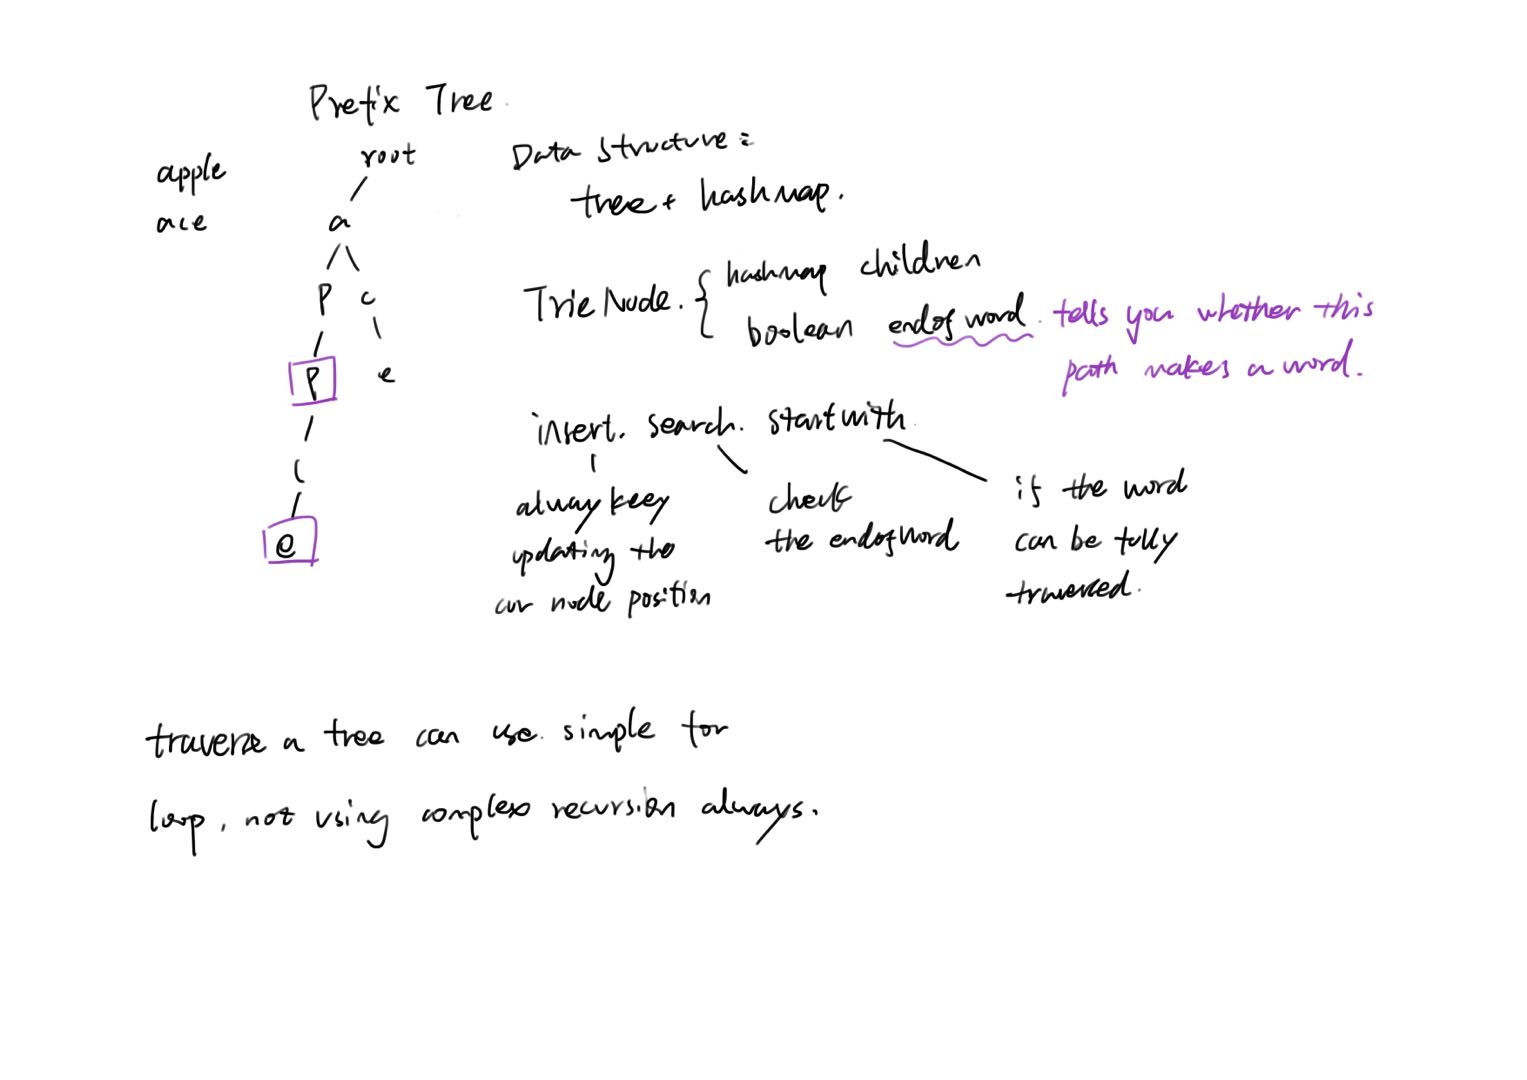 Prefix Tree
apple
ace
root
a
P c
P e
l
e
Data Structure:
tree + hashmap.
TrieNode. { hashmap children
boolean endof word. tells you whether this
path makes a word.
insert. search. startwith
alway keep
updating the
cur node position
check
the endofword
if the word
can be fully
traversed.
traverse a tree can use simple for
loop, not using complex recursion always.